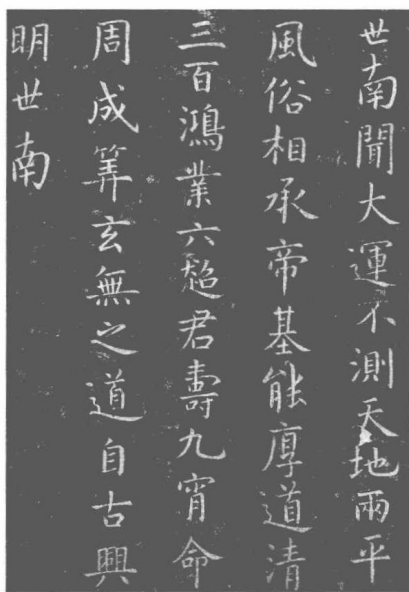 世南聞大運不測天地兩平
風俗相承帝基能厚道清
三百鴻業六超君壽九霄命
周成筭玄無之道自古興
明世南